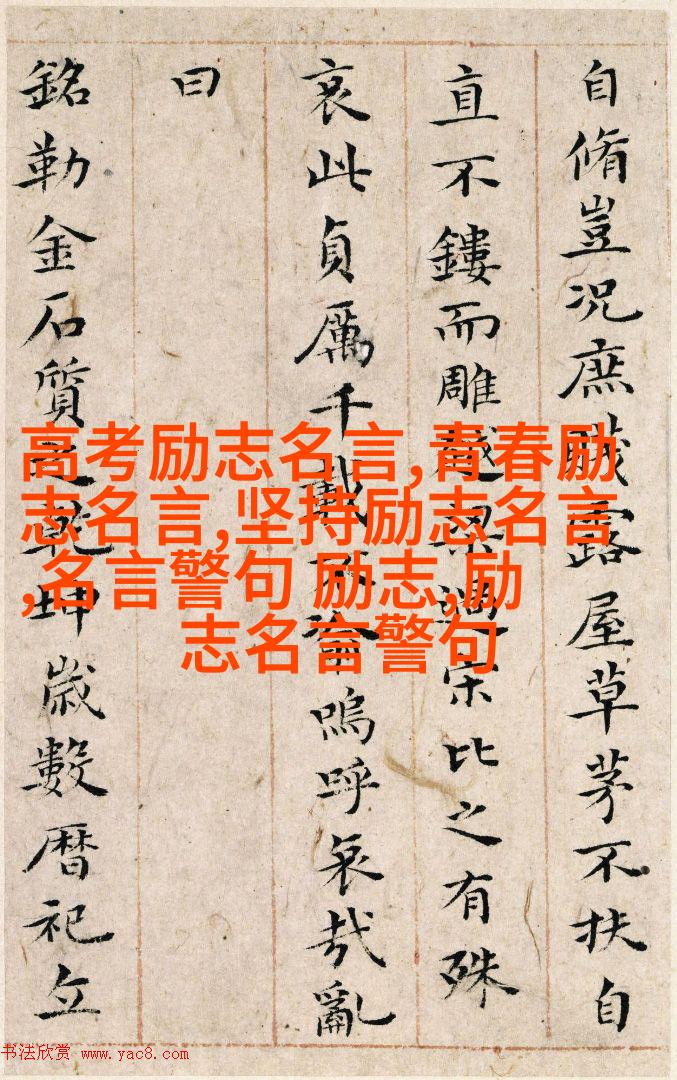 自脩豈況庶賤露屋草茅不扶自
直不鏤而雕越梁過宋比之有殊
哀此貞厲千載不渝嗚呼哀哉亂
曰
銘勒金石質之乾坤歲數曆祀立
高考励志名言,青春励
志名言,坚持励志名言
,名言警句 励志,励
志名言警句
书法欣赏 www.yac8.com